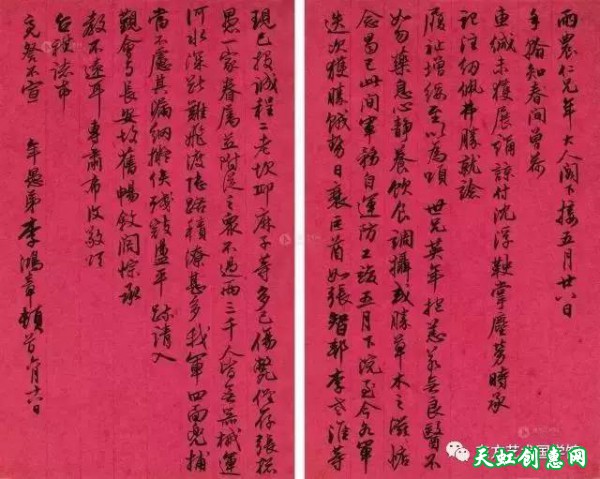 雨农仁兄年大人阁下接五月廿八日
手书知春间曾荷
惠缄未获展诵谅付沈浮鞅掌尘劳时承
记注纫佩弗胜就谂
履祉增绥至以为颂 世兄英年抱恙若无良医不
如勿药息心静养饮食调摄或胜草木之滋
念昌已此间军务自运防工竣五月下浣至今各军
迭次获胜贼势日衰巨酋如张智邨李老淮等
现已投诚程二老坎邱麻子等多已伤毙仅存张总
愚一家眷属并附从之众不过两三千人皆无器械运
河水深断难飞渡陆路积潦甚多我军四面兜捕
当不虑其漏网拟俟残敌荡平 疏请入
觐会与长安故旧畅叙阔悰承
教不远耳 专肃布复敬颂
台祺诸希
亮察不宣 年愚弟李鸿章顿首六月十六日
东方艺术国学馆
天虹创意网